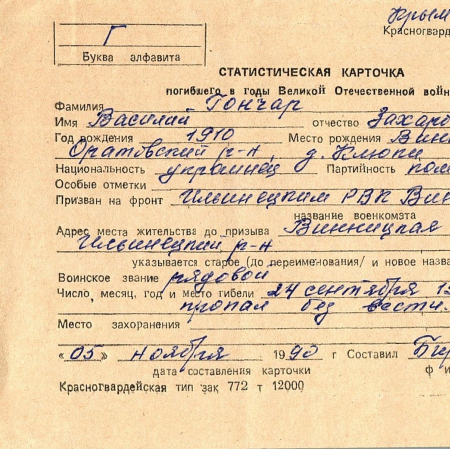 Крым
Красногвард
Г
Буква алфавита
СТАТИСТИЧЕСКАЯ КАРТОЧКА
погибшего в годы Великой Отечественной войн
Фамилия Гончар
Имя Василий отчество Захаро
Год рождения 1910 Место рождения Вин
Оратовский р-н, д. Клюки
Национальность украинец Партийность
Особые отметки
Призван на фронт Ильинецким РВК Вин
название военкомата
Адрес места жительства до призыва Винницкая
Ильинецкий р-н
указывается старое (до переименования/ и новое назва
Воинское звание рядовой
Число, месяц, год и место гибели 24 сентября 19
пропал без вести.
Место захоронения
"05" ноября 1990 г Составил
дата составления карточки ф и
Красногвардейская тип зак 772 т 12000